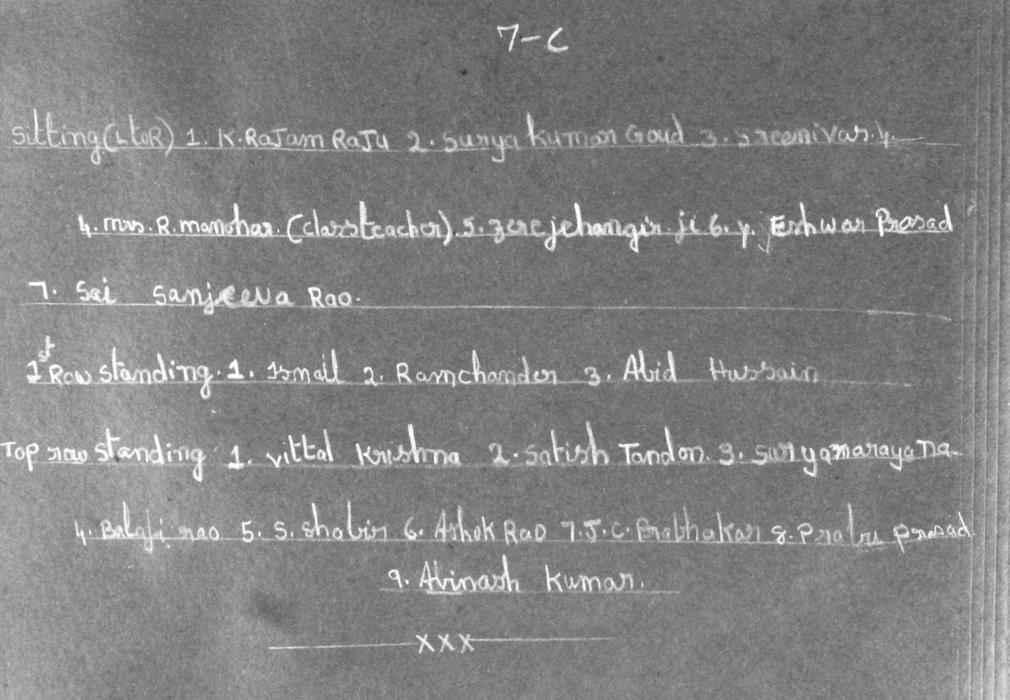 7-C
Sitting (L to R) 1. K. RaJam RaJu 2. Surya kumar Goud 3. Sreenivas. 4.
4. mrs. R. manohar. (classteacher). 5. zere jehangir ji 6. y. Eshwar Prasad
7. Sai Sanjeeva Rao.
1st Row standing. 1. Ismail 2. Ramchander 3. Abid Hussain
Top row standing 1. vittal Krishna 2. Satish Tandon. 3. Suryanarayana.
4. Balaji rao 5. S. shabir 6. Ashok Rao 7. J. C. Prabhakar 8. Prabu prasad
9. Abinash Kumar.
XXX